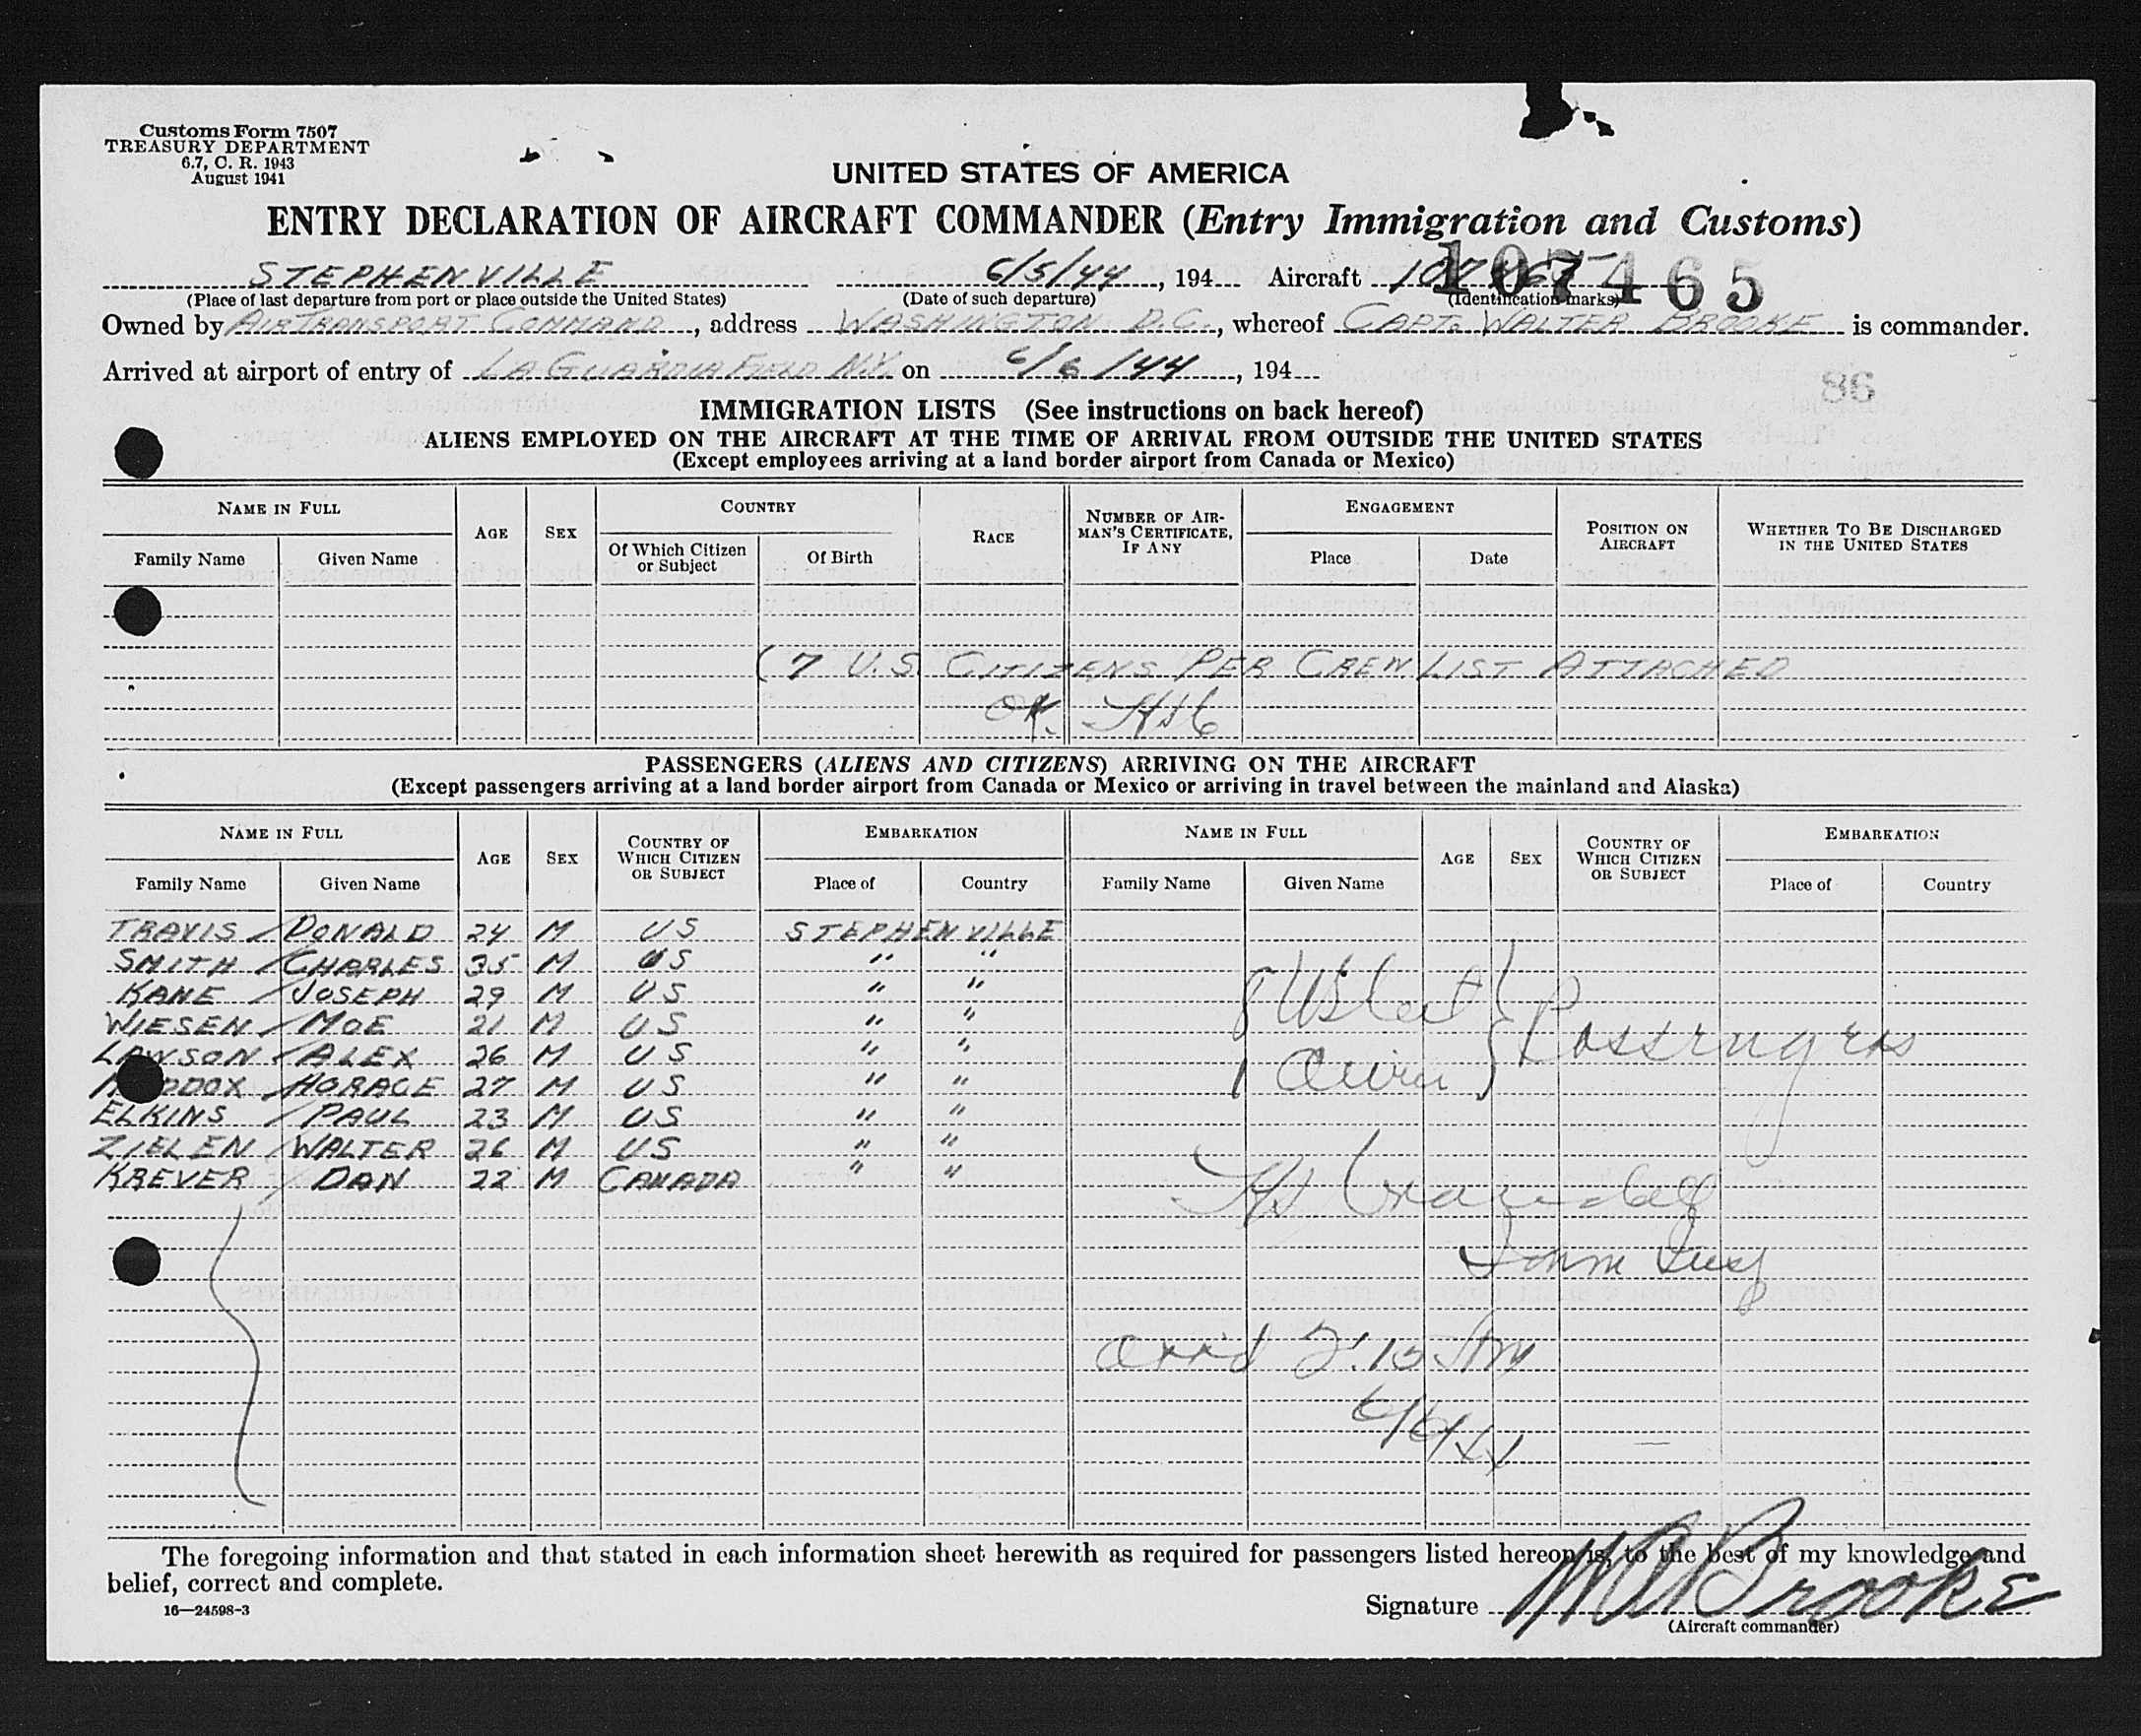 Customs Form 7507
TREASURY DEPARTMENT
6.7, C. R. 1943
August 1941
UNITED STATES OF AMERICA
ENTRY DECLARATION OF AIRCRAFT COMMANDER (Entry Immigration and Customs)
107465
STEPHENVILLE 6/5/44, 194 Aircraft 107465
(Place of last departure from port or place outside the United States) (Date of such departure) (Identification marks)
Owned by AIR TRANSPORT COMMAND, address WASHINGTON D.C., whereof CAPT. WALTER BROOKE is commander.
Arrived at airport of entry of LA GUARDIA FIELD N.Y. on 6/6/44, 194
86
IMMIGRATION LISTS (See instructions on back hereof)
ALIENS EMPLOYED ON THE AIRCRAFT AT THE TIME OF ARRIVAL FROM OUTSIDE THE UNITED STATES
(Except employees arriving at a land border airport from Canada or Mexico)
NAME IN FULL AGE SEX COUNTRY RACE NUMBER OF AIRMAN'S CERTIFICATE, IF ANY ENGAGEMENT POSITION ON AIRCRAFT WHETHER TO BE DISCHARGED IN THE UNITED STATES
Family Name Given Name Of Which Citizen or Subject Of Birth Place Date
(7 U.S. CITIZENS PER CREW LIST ATTACHED
OK.
PASSENGERS (ALIENS AND CITIZENS) ARRIVING ON THE AIRCRAFT
(Except passengers arriving at a land border airport from Canada or Mexico or arriving in travel between the mainland and Alaska)
NAME IN FULL AGE SEX COUNTRY OF WHICH CITIZEN OR SUBJECT EMBARKATION NAME IN FULL AGE SEX COUNTRY OF WHICH CITIZEN OR SUBJECT EMBARKATION
Family Name Given Name Place of Country Family Name Given Name Place of Country
TRAVIS DONALD 24 M US STEPHENVILLE
SMITH CHARLES 35 M US " "
KANE JOSEPH 29 M US " "
WIESEN MOE 21 M US " "
LAWSON ALEX 26 M US " "
HORACE 27 M US " "
ELKINS PAUL 23 M US " "
ZIELEN WALTER 26 M US " "
KREVER DAN 22 M CANADA " "
8 USCit } Passengers
1 Alien
Imm Insp
Arr'd
6/6/44
The foregoing information and that stated in each information sheet herewith as required for passengers listed hereon is, to the best of my knowledge and
belief, correct and complete.
16—24598-3
Signature W A Brooke
(Aircraft commander)